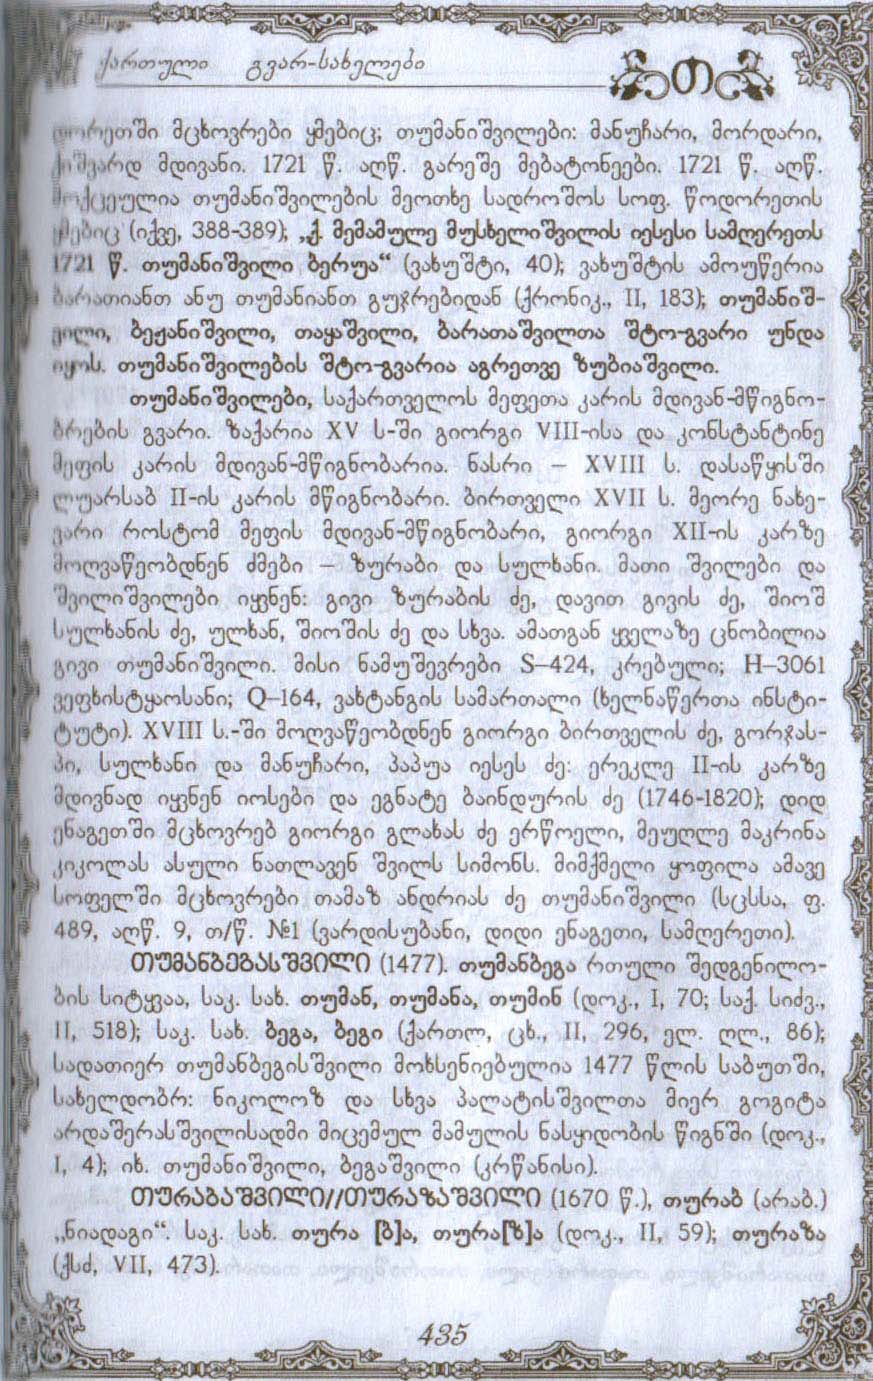 ქართული გვარ-სახელები
თ
დორეთში მცხოვრები ყმებიც; თუმანიშვილები: მანუჩარი, მორდარი,
ქიშვარდ მდივანი. 1721 წ. აღწ. გარეშე მებატონეები. 1721 წ. აღწ.
მოქცეულია თუმანიშვილების მეოთხე სადროშოს სოფ. წოდორეთის
ყმებიც (იქვე, 388-389); „ქ. მემამულე მუსხელიშვილის იესესი სამღერეთს
1721 წ. თუმანიშვილი ბერუა“ (ვახუშტი, 40); ვახუშტის ამოუწერია
ბარათიანთ ანუ თუმანიანთ გუჯრებიდან (ქრონიკ., II, 183); თუმანიშ-
ვილი, ბეჟანიშვილი, თაყაშვილი, ბარათაშვილთა შტო-გვარი უნდა
იყოს. თუმანიშვილების შტო-გვარია აგრეთვე ზუბიაშვილი.
თუმანიშვილები, საქართველოს მეფეთა კარის მდივან-მწიგნო-
ბრების გვარი. ზაქარია XV ს-ში გიორგი VIII-ისა და კონსტანტინე
მეფის კარის მდივან-მწიგნობარია. ნასრი – XVIII ს. დასაწყისში
ლუარსაბ II-ის კარის მწიგნობარი. ბირთველი XVII ს. მეორე ნახე-
ვარი როსტომ მეფის მდივან-მწიგნობარი, გიორგი XII-ის კარზე
მოღვაწეობდნენ ძმები – ზურაბი და სულხანი. მათი შვილები და
შვილიშვილები იყვნენ: გივი ზურაბის ძე, დავით გივის ძე, შიოშ
სულხანის ძე, ულხან, შიოშის ძე და სხვა. ამათგან ყველაზე ცნობილია
გივი თუმანიშვილი. მისი ნამუშევრები S–424, კრებული; H–3061
ვეფხისტყაოსანი; Q–164, ვახტანგის სამართალი (ხელნაწერთა ინსტი-
ტუტი). XVIII ს.-ში მოღვაწეობდნენ გიორგი ბირთველის ძე, გორჯას-
პი, სულხანი და მანუჩარი, პაპუა იესეს ძე: ერეკლე II-ის კარზე
მდივნად იყვნენ იოსები და ეგნატე ბაინდურის ძე (1746-1820); დიდ
ენაგეთში მცხოვრებ გიორგი გლახას ძე ერწოელი, მეუღლე მაკრინა
კიკოლას ასული ნათლავენ შვილს სიმონს. მიმქმელი ყოფილა ამავე
სოფელში მცხოვრები თამაზ ანდრიას ძე თუმანიშვილი (სცსსა, ფ.
489, აღწ. 9, თ/წ. №1 (ვარდისუბანი, დიდი ენაგეთი, სამღერეთი).
თუმანბეგასშვილი (1477). თუმანბეგა რთული შედგენილო-
ბის სიტყვაა, საკ. სახ. თუმან, თუმანა, თუმინ (დოკ., I, 70; საქ. სიძვ.,
II, 518); საკ. სახ. ბეგა, ბეგი (ქართლ, ცხ., II, 296, ელ. ღლ., 86);
სადათიერ თუმანბეგისშვილი მოხსენიებულია 1477 წლის საბუთში,
სახელდობრ: ნიკოლოზ და სხვა პალატისშვილთა მიერ გოგიტა
არდაშერასშვილისადმი მიცემულ მამულის ნასყიდობის წიგნში (დოკ.,
I, 4); იხ. თუმანიშვილი, ბეგაშვილი (კრწანისი).
თურაბაშვილი//თურაზაშვილი (1670 წ.), თურაბ (არაბ.)
„ნიადაგი“. საკ. სახ. თურა [ბ]ა, თურა[ზ]ა (დოკ., II, 59); თურაზა
(ქსძ, VII, 473).
435